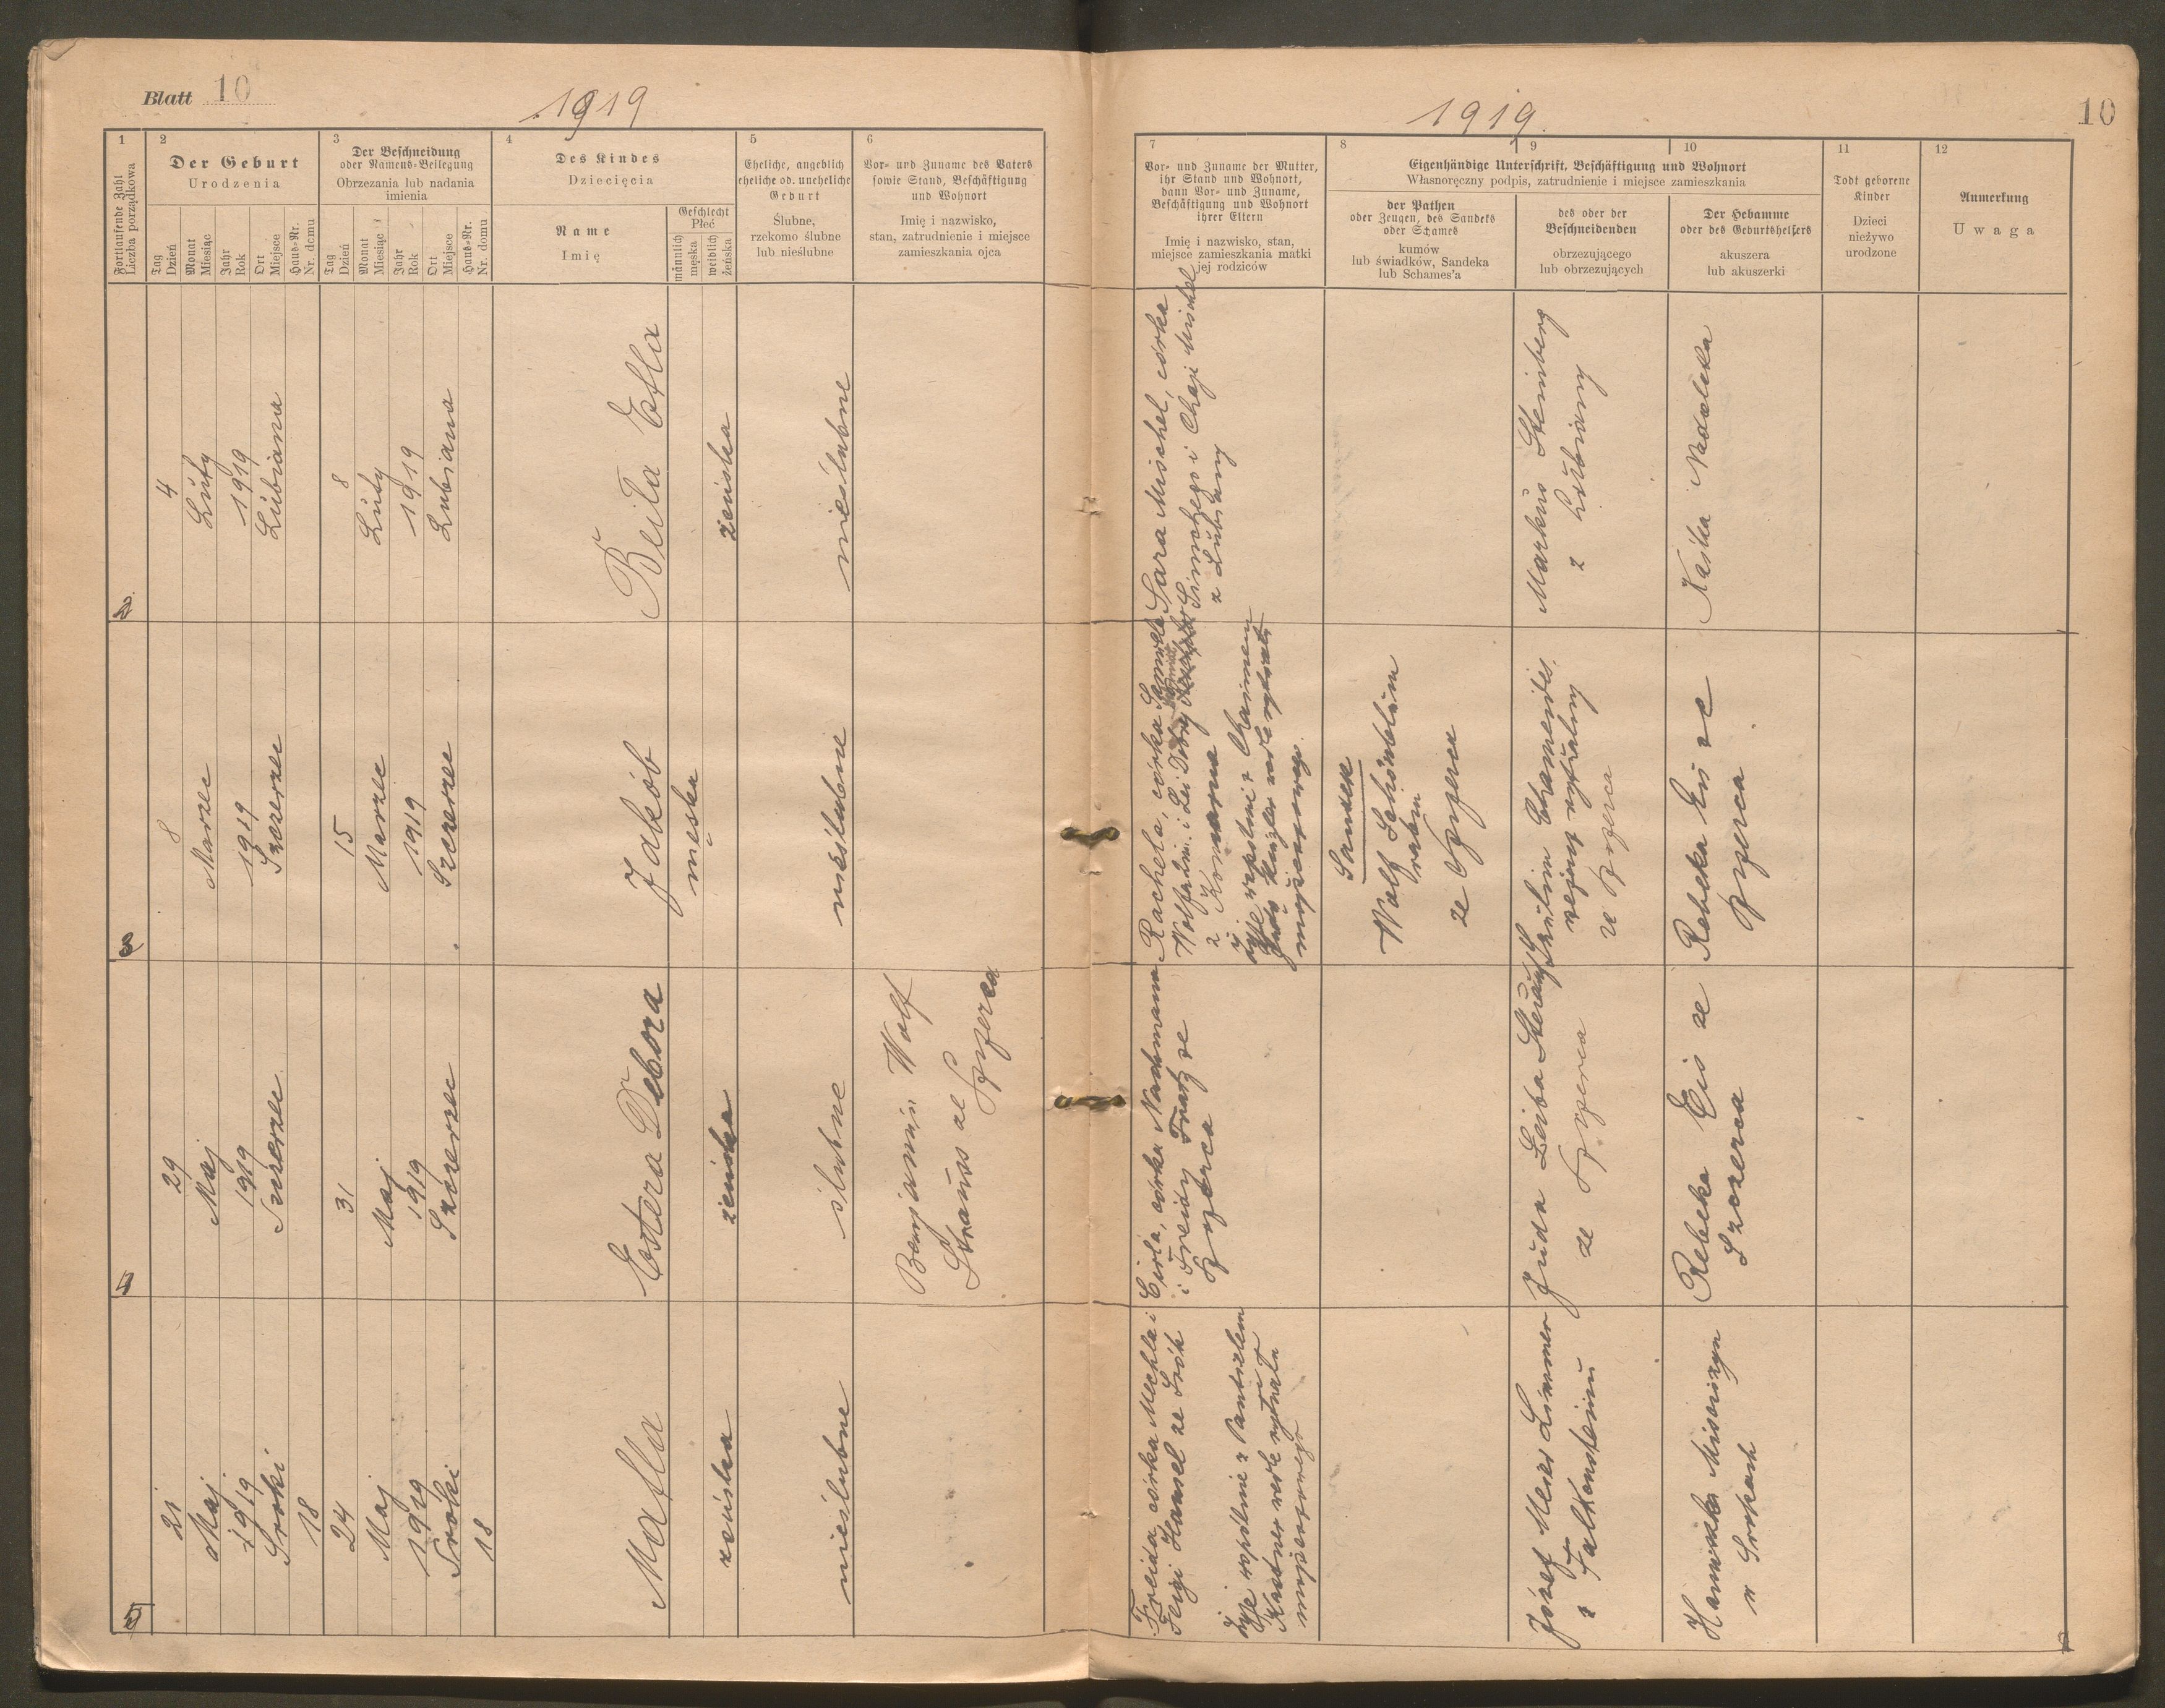 Blatt 10
1919
1919
10
1
2
3
4
5
6
Fortlaufende Zahl
Liczba porządkowa
Der Geburt
Urodzenia
Tag
Dzień
Monat
Miesiąc
Jahr
Rok
Ort
Miejsce
Haus-Nr.
Nr. domu
Der Beschneidung
oder Namens-Beilegung
Obrzezania lub nadania
imienia
Tag
Dzień
Monat
Miesiąc
Jahr
Rok
Ort
Miejsce
Haus-Nr.
Nr. domu
Des Kindes
Dziecięcia
Name
Imię
Geschlecht
Płeć
männlich
męska
weiblich
żeńska
Eheliche, angeblich
eheliche od. uneheliche
Geburt
Ślubne,
rzekomo ślubne
lub nieślubne
Vor- und Zuname des Vaters
sowie Stand, Beschäftigung
und Wohnort
Imię i nazwisko,
stan, zatrudnienie i miejsce
zamieszkania ojca
7
8
9
10
11
12
Vor- und Zuname der Mutter,
ihr Stand und Wohnort,
dann Vor- und Zuname,
Beschäftigung und Wohnort
ihrer Eltern
Imię i nazwisko, stan,
miejsce zamieszkania matki
jej rodziców
Eigenhändige Unterschrift, Beschäftigung und Wohnort
Własnoręczny podpis, zatrudnienie i miejsce zamieszkania
der Pathen
oder Zeugen, des Sandeks
oder Schames
kumów
lub świadków, Sandeka
lub Schames'a
des oder der
Beschneidenden
obrzezującego
lub obrzezujących
Der Hebamme
oder des Geburtshelfers
akuszera
lub akuszerki
Todt geborene
Kinder
Dzieci
nieżywo
urodzone
Anmerkung
Uwaga
4
Luty
1919
Lubiana
8
Luty
1919
Lubiana
Beila Etla
żeńska
nieślubne
Sara Mischel, córka
i Chaji Mischel
z Lubiany
Markus Steinberg
z Lubiany
Kaśka
3
8
Marzec
1919
Szczerzec
15
Marzec
1919
Szczerzec
Jakób
męska
nieślubne
Rachela, córka Samuela
z Komarna
żyje wspólnie z Chaimem
Sandek
Wolf Schönblum
rabin
ze Szczerca
Srulim Chameides
ze Szczerca
Rebeka Eis ze
Szczerca
4
29
Maj
1919
Szczerzec
31
Maj
1919
Szczerzec
Estera Debora
żeńska
ślubne
Benjamin Wolf
Strauss ze
Szczerca
Cirla, córka Nachmana
i Freidy Tratz ze
Szczerca
Juda Leiba Strauss
ze Szczerca
Rebeka Eis ze
Szczerca
5
21
Maj
1919
Sroki
18
24
Maj
1919
Sroki
18
Matla
żeńska
nieślubne
Freida, córka Mechla i
Feigi Hansel ze Srók
żyje wspólnie z
Kastner
Józef Meier Limmer
z Falkensteinu
w Srokach